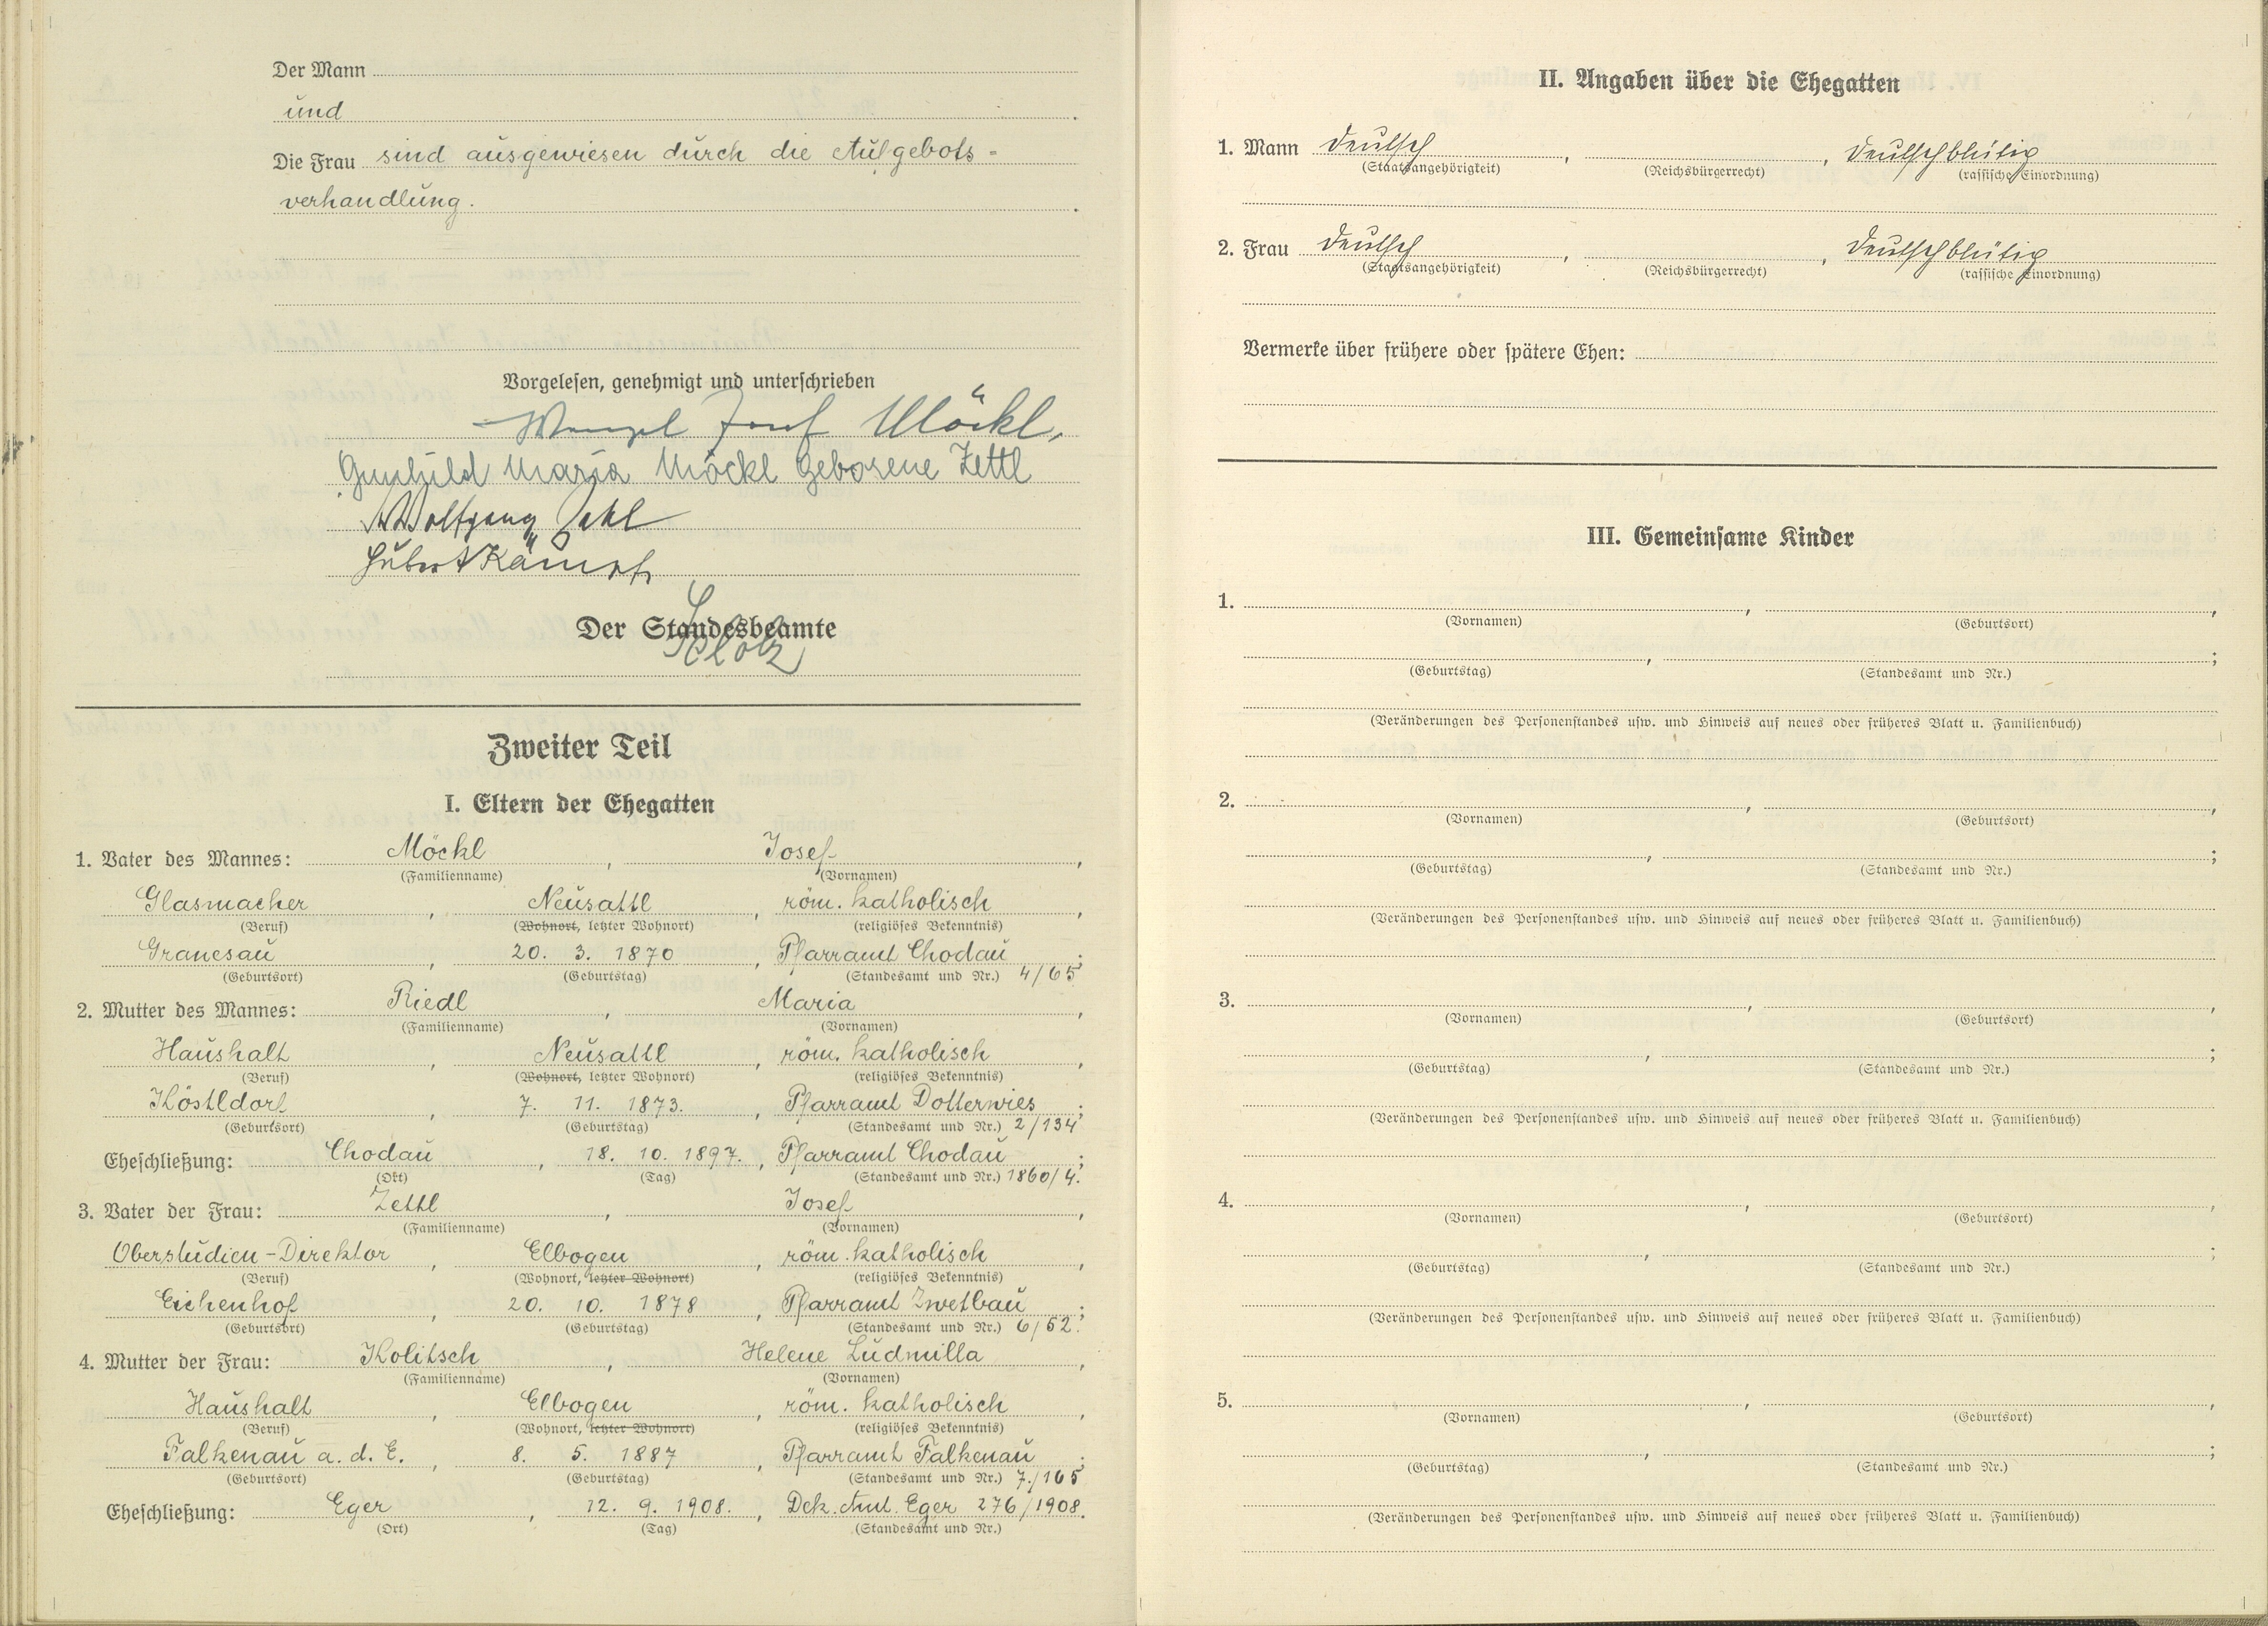 Der Mann
und
Die Frau sind ausgewiesen durch die Aufgebots-
verhandlung.
Vorgelesen, genehmigt und unterschrieben
Wenzel Josef Möckl,
Gunhild Maria Möckl geborene Zettl
Wolfgang
Hubert Kämpf
Der Standesbeamte
Zweiter Teil
I. Eltern der Ehegatten
1. Vater des Mannes: Möckl, Josef,
(Familienname) (Vornamen)
Glasmacher, Neusattl, röm. katholisch,
(Beruf) (Wohnort, letzter Wohnort) (religiöses Bekenntnis)
Granesau, 20. 3. 1870, Pfarramt Chodau;
(Geburtsort) (Geburtstag) (Standesamt und Nr.) 4/65
2. Mutter des Mannes: Riedl, Maria,
(Familienname) (Vornamen)
Haushalt, Neusattl, röm. katholisch,
(Beruf) (Wohnort, letzter Wohnort) (religiöses Bekenntnis)
Köstldorf, 7. 11. 1873., Pfarramt Dotterwies;
(Geburtsort) (Geburtstag) (Standesamt und Nr.) 2/134
Eheschließung: Chodau, 18. 10. 1897., Pfarramt Chodau;
(Ort) (Tag) (Standesamt und Nr.) 1860/4.
3. Vater der Frau: Zettl, Josef,
(Familienname) (Vornamen)
Oberstudien-Direktor, Elbogen, röm. katholisch,
(Beruf) (Wohnort, letzter Wohnort) (religiöses Bekenntnis)
Eichenhof, 20. 10. 1878, Pfarramt Zwetbau;
(Geburtsort) (Geburtstag) (Standesamt und Nr.) 6/52.
4. Mutter der Frau: Kolitsch, Helene Ludmilla,
(Familienname) (Vornamen)
Haushalt, Elbogen, röm. katholisch,
(Beruf) (Wohnort, letzter Wohnort) (religiöses Bekenntnis)
Falkenau a. d. E., 8. 5. 1887, Pfarramt Falkenau;
(Geburtsort) (Geburtstag) (Standesamt und Nr.) 7./165
Eheschließung: Eger, 12. 9. 1908., Dek. Amt. Eger 276/1908.
(Ort) (Tag) (Standesamt und Nr.)
II. Angaben über die Ehegatten
1. Mann deutsch, , deutschblütig
(Staatsangehörigkeit) (Reichsbürgerrecht) (rassische Einordnung)
2. Frau deutsch, , deutschblütig
(Staatsangehörigkeit) (Reichsbürgerrecht) (rassische Einordnung)
Vermerke über frühere oder spätere Ehen:
III. Gemeinsame Kinder
1. , ,
(Vornamen) (Geburtsort)
, ;
(Geburtstag) (Standesamt und Nr.)
(Veränderungen des Personenstandes usw. und Hinweis auf neues oder früheres Blatt u. Familienbuch)
2. , ,
(Vornamen) (Geburtsort)
, ;
(Geburtstag) (Standesamt und Nr.)
(Veränderungen des Personenstandes usw. und Hinweis auf neues oder früheres Blatt u. Familienbuch)
3. , ,
(Vornamen) (Geburtsort)
, ;
(Geburtstag) (Standesamt und Nr.)
(Veränderungen des Personenstandes usw. und Hinweis auf neues oder früheres Blatt u. Familienbuch)
4. , ,
(Vornamen) (Geburtsort)
, ;
(Geburtstag) (Standesamt und Nr.)
(Veränderungen des Personenstandes usw. und Hinweis auf neues oder früheres Blatt u. Familienbuch)
5. , ,
(Vornamen) (Geburtsort)
, ;
(Geburtstag) (Standesamt und Nr.)
(Veränderungen des Personenstandes usw. und Hinweis auf neues oder früheres Blatt u. Familienbuch)